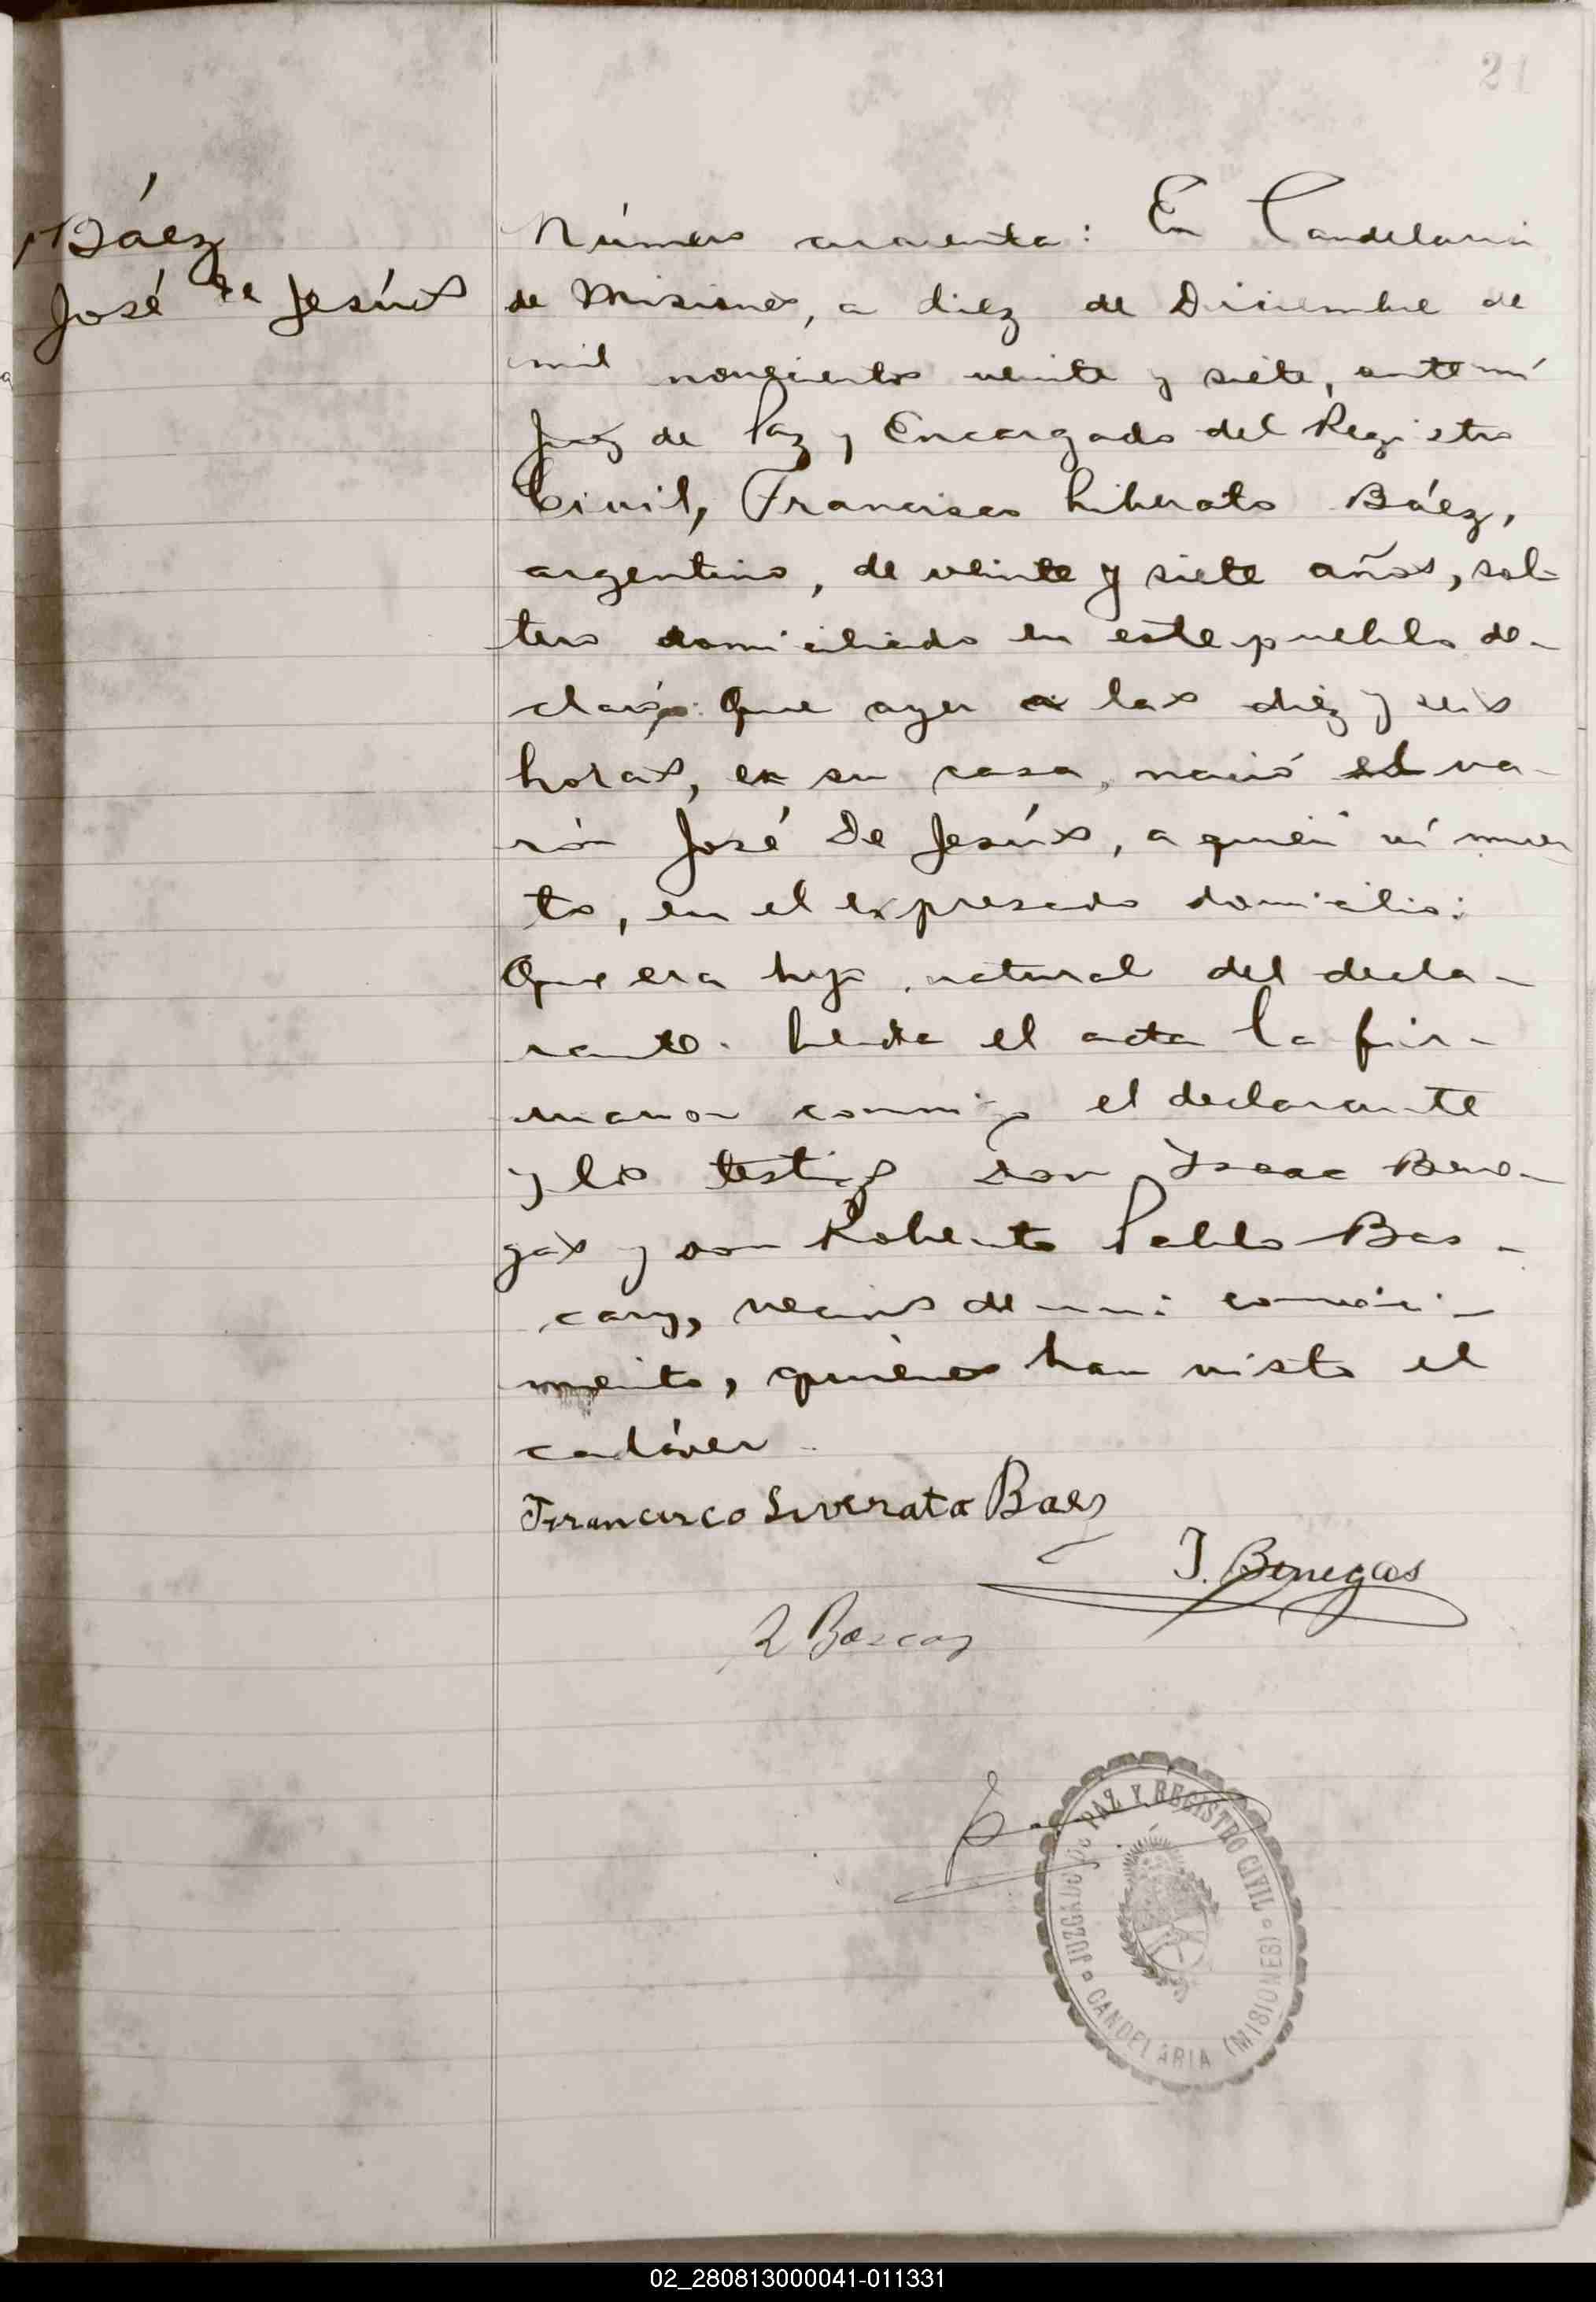 21
Báez
José de Jesús
Número cuarenta: En Candelaria
de Misiones, a diez de Diciembre de
mil novecientos veinte y siete, ante mí
Juez de Paz y Encargado del Registro
Civil, Francisco Liberato Báez,
argentino, de veinte y siete años, sol-
tero domiciliado en este pueblo de-
claró: Que ayer a las diez y seis
horas, en su casa, nació el va-
rón José de Jesús, a quien ví muer
to, en el expresado domicilio:
Que era hijo natural del decla-
rante. Leída el acta la fir-
maron conmigo el declarante
y los testigos don Isaac Bene-
gas y don Roberto Pablo Bas-
cary, vecinos de mi conoci-
miento, quienes han visto el
cadáver.
Francisco Liverato Baez
I. Benegas
R Bascary
JUZGADO DE PAZ Y REGISTRO CIVIL
CANDELARIA (MISIONES)
02_280813000041-011331